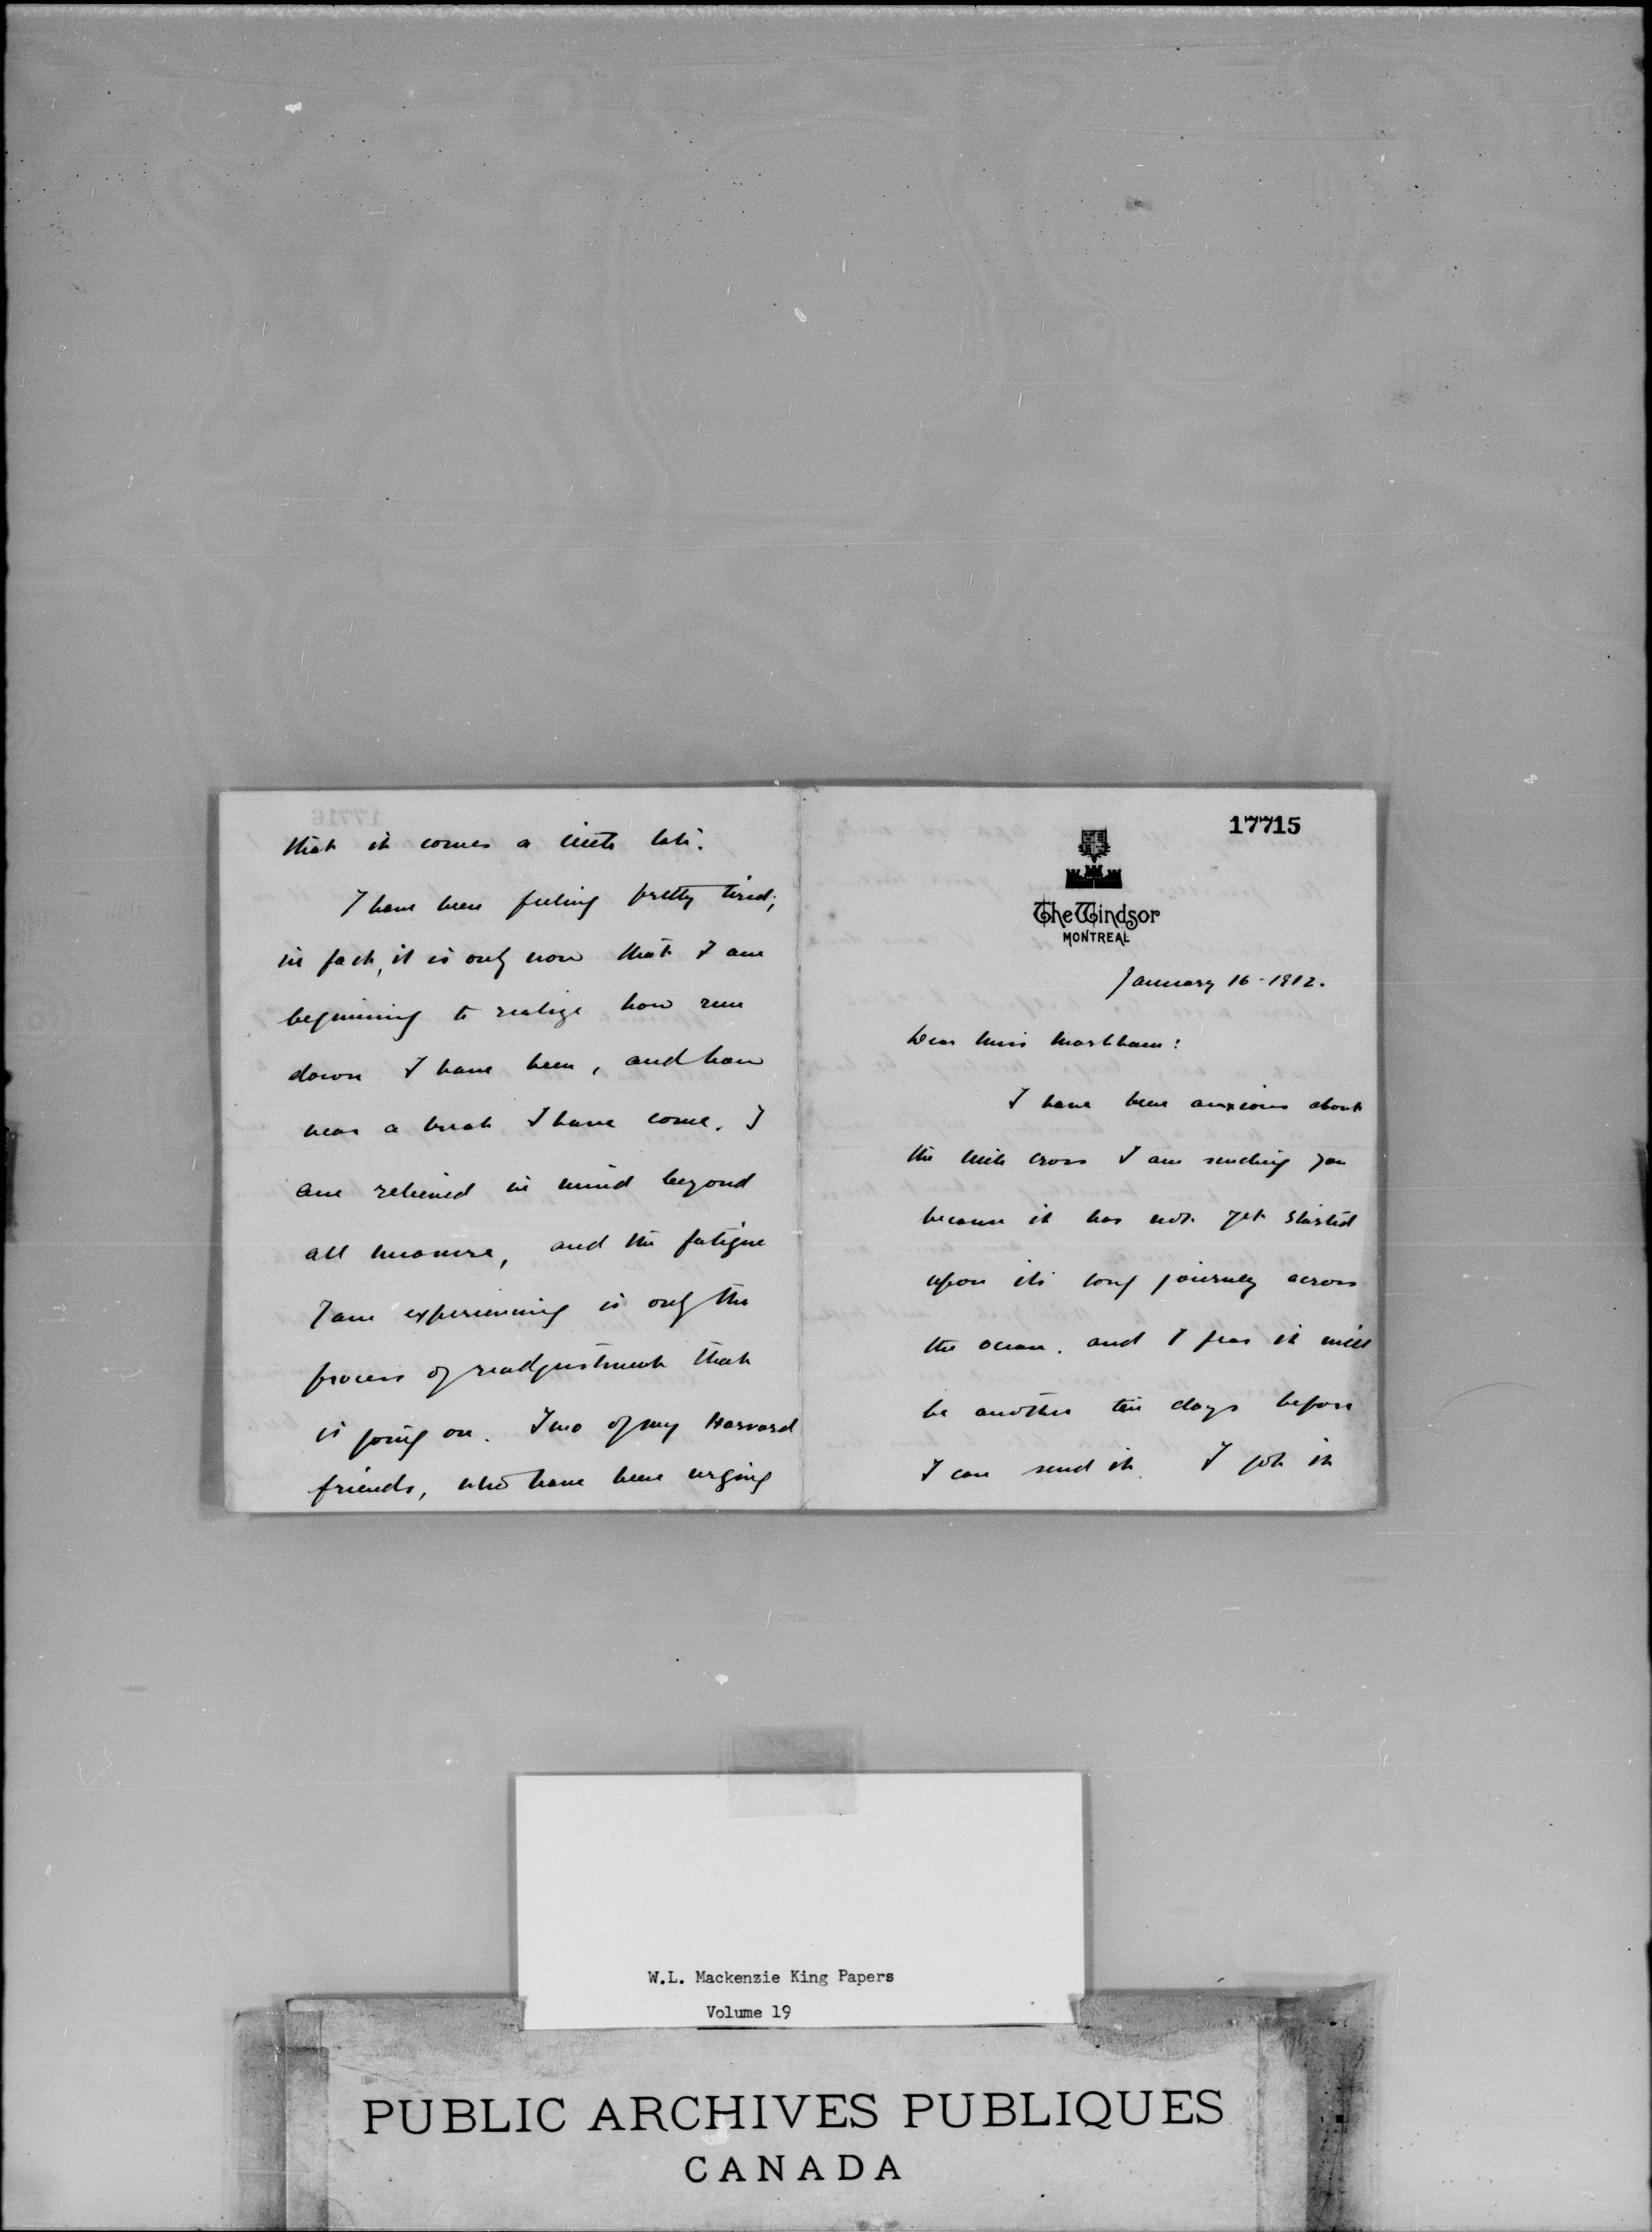 that it comes a little late.
I have been feeling pretty tired;
in fact, it is only now that I am
beginning to realize how run
down I have been, and how
near a break I have come. I
am relieved in mind beyond
all measure, and the fatigue
I am experiencing is only the
process of readjustment that
is going on. Two of my Harvard
friends, who have been urging
17715
The Windsor
MONTREAL
January 16 - 1912.
Dear Miss Markham:
I have been anxious about
the little cross I am sending you
because it has not yet started
upon its long journey across
the ocean, and I fear it will
be another ten days before
I can send it. I got it
W.L. Mackenzie King Papers
Volume 19
PUBLIC ARCHIVES PUBLIQUES
CANADA